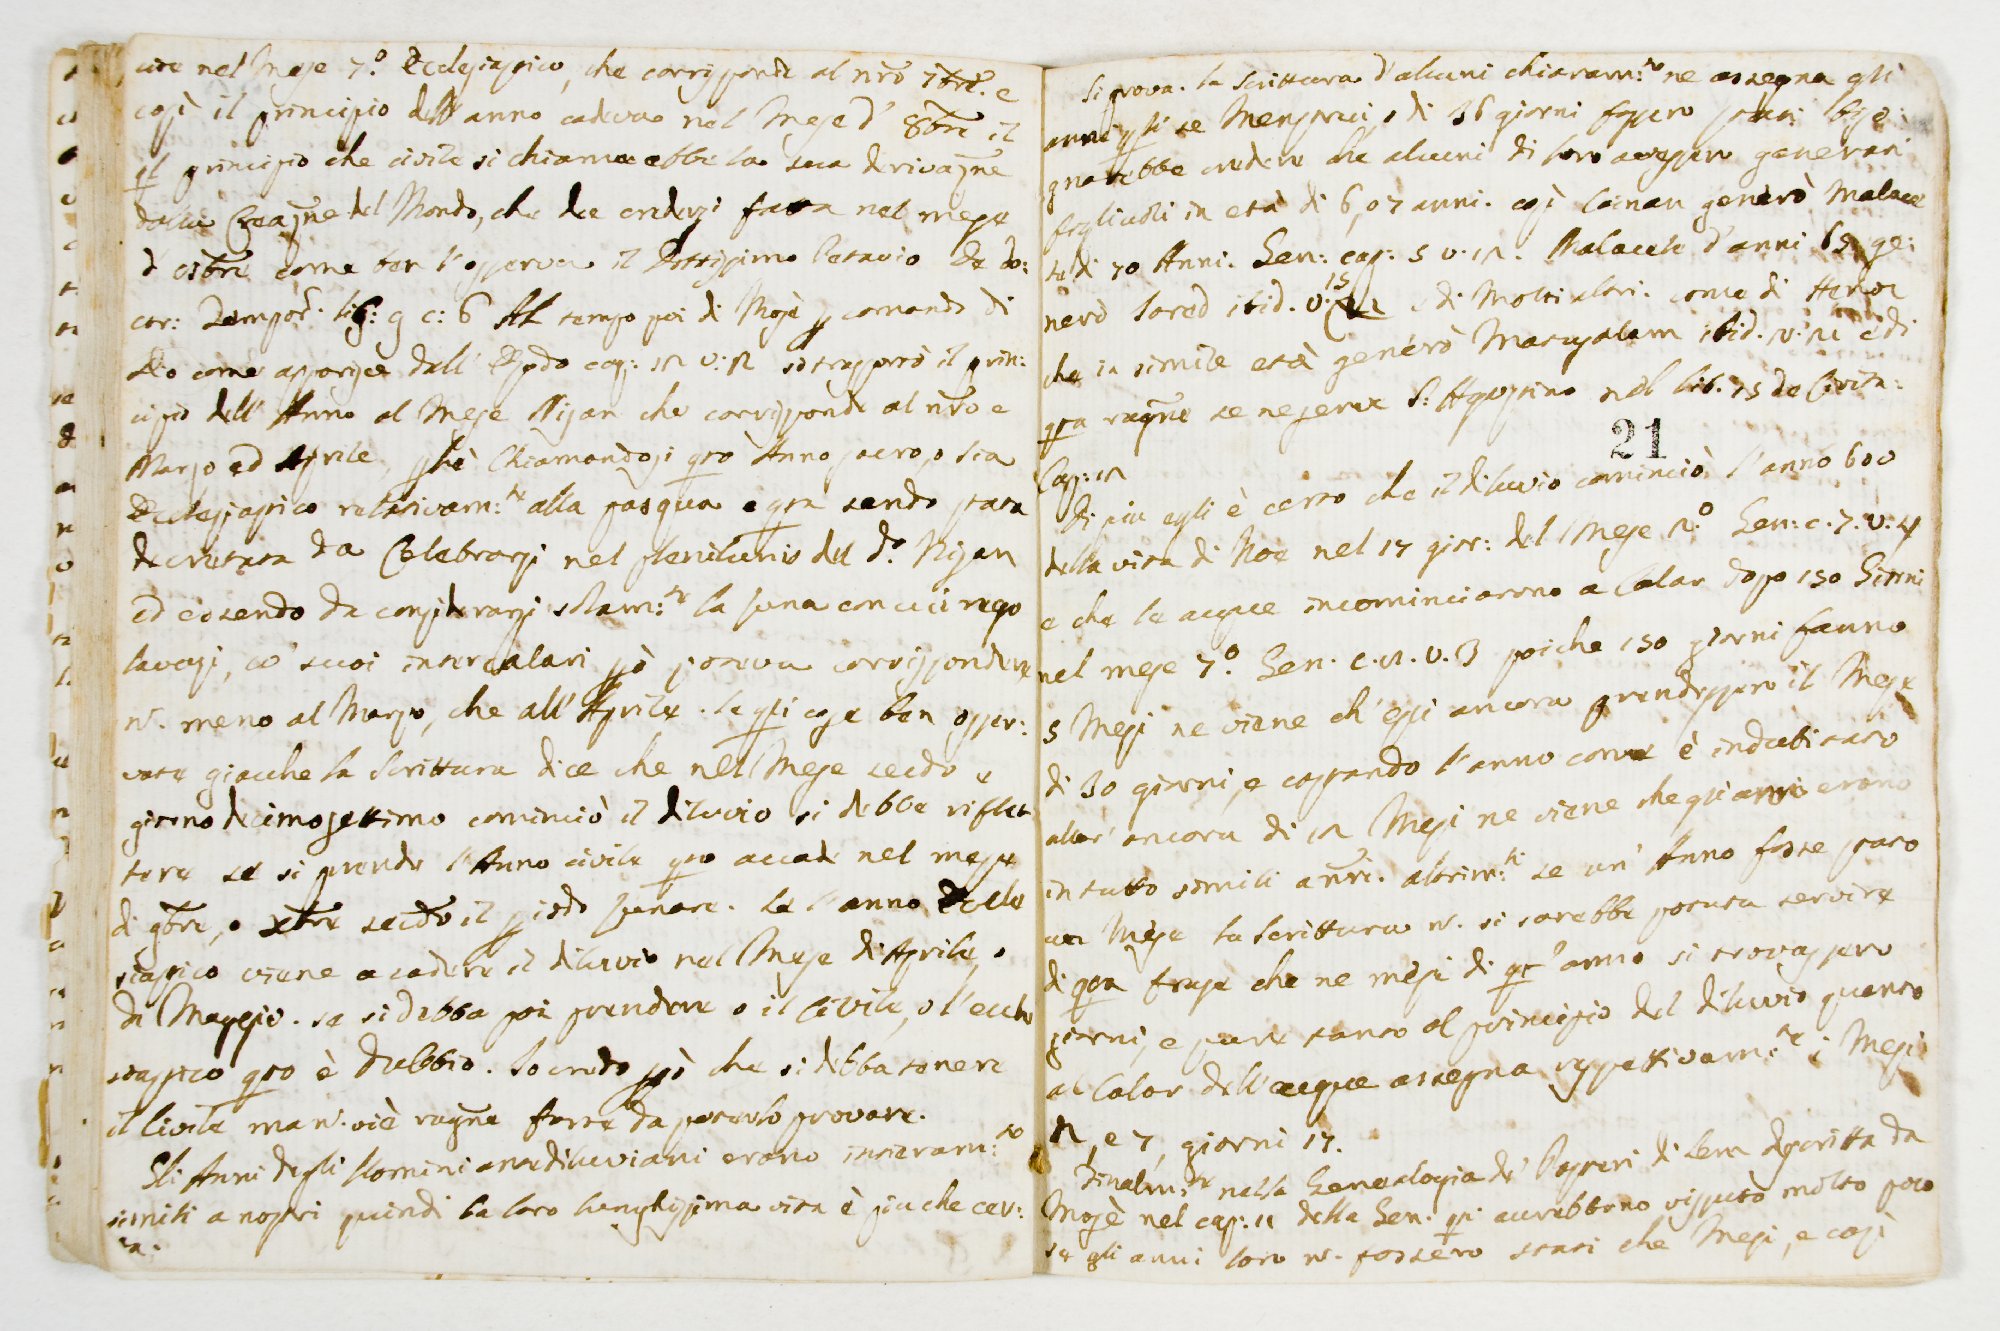 cire nel Mese 7.º Ecclesiastico, che corrisponde al nrõ 7brẽ. e
così il principio dell' anno cadeva nel Mese d' 8brẽ il
ql principio che civile si chiama ebbe la sua derivazñe
dalla Creazñe del Mondo, che dee credersi fatta nel mese
d' ottbrẽ come ben l'osserva il Dottissimo Petavio De do:
ctr: Tempor̃. lib: 9 c: 6 Al tempo poi di Mosè p comando di
Dio come apparisce dall' Esodo cap: 12 v: 2 si trasportò il prin:
cipio dell' Anno al Mese Nisan che corrisponde al nrõ e
Marzo ed Aprile, phè Chiamandosi qto Anno sacro, o sia
Ecclesiastico relativam:te alla pasqua e qta sendo stata
decretata da Celebrarsi nel plenilunio del do. Nisan
ed essendo da considerarsi solam:te la luna con cui rego
lavasi, co' suoi intercalari pò poteva corrispondere
n. meno al Marzo, che all' Aprile. le qli cose ben osser:
vate giacche la Scrittura dice che nell Mese secdo e
giorno decimosettimo cominciò il diluvio si debbe riflet
tere se si prende l'Anno civile qto accade nel mese
di 9brẽ, o Xbrẽ secdõ il piodo lunare. Se l' anno Eccle
siastico viene a cadere il diluvio nel Mese di Aprile, o
di Maggio. se si debba poi prendere o il Civile, o l' eccle
siastico qto è dubbio. Io credo pò che si debba tenere
il Civile ma n. v'è ragñe forte da poterlo provare.
Gli Anni degli Uomini antediluviani erano interam:te
simili a nostri quindi la loro lunghissima vita è piu che cer:
ta:
Si prova. la Scrittura d'alcuni chiaram:te ne assegna gli
anni qli se Menstrui, o di 36 giorni fossero stati biso:
gnarebbe credere che alcuni di loro avessero generati
figliuoli in età di 6, o 7 anni. così Cainan generò Malaee
le di 70 Anni. Gen: cap: 5 v: 12. Malaeele d'anni 65 ge:
nerò Jared ibid. v: 15 e di molti altri. come di Henoc
che in simile età generò Matusalem ibid. v: 21 e di
qta ragñe se ne serve S. Agostino nel lib. 15 de Civita:
Cap: 12
21
Di piu egli è certo che il diluvio cominciò l' anno 600
della vita di Noe nel 17 gior: del Mese 2.º Gen: c. 7. v: 4
e che le acque incominciarono a Calar dopo 150 Giorni
nel mese 7.º Gen. c. 8. v. 3 poiche 150 giorni fanno
5 Mesi ne viene ch' essi ancora prendessero il Mese
di 30 giorni, e costando l' anno come è indubitato
allor' ancora di 12 Mesi ne viene che qli anni erano
in tutto simili a nrĩ. altrim:ti se un' Anno fosse stato
un Mese la Scrittura n. si sarebbe potuta servire
di qta frase che ne mesi di qt' anno si trovassero
giorni, e pure tanto al principio del diluvio quanto
al Calar dell' acque assegna rispettivam:te i Mesi
2, e 7, giorni 17.
Finalm:te nella Genealogia de' Posteri di Sem descritta da
Mosè nel cap: 11 della Gen. qti avrebbono vissuto molto poco
se gli anni loro n. fossero stati che Mesi, e così